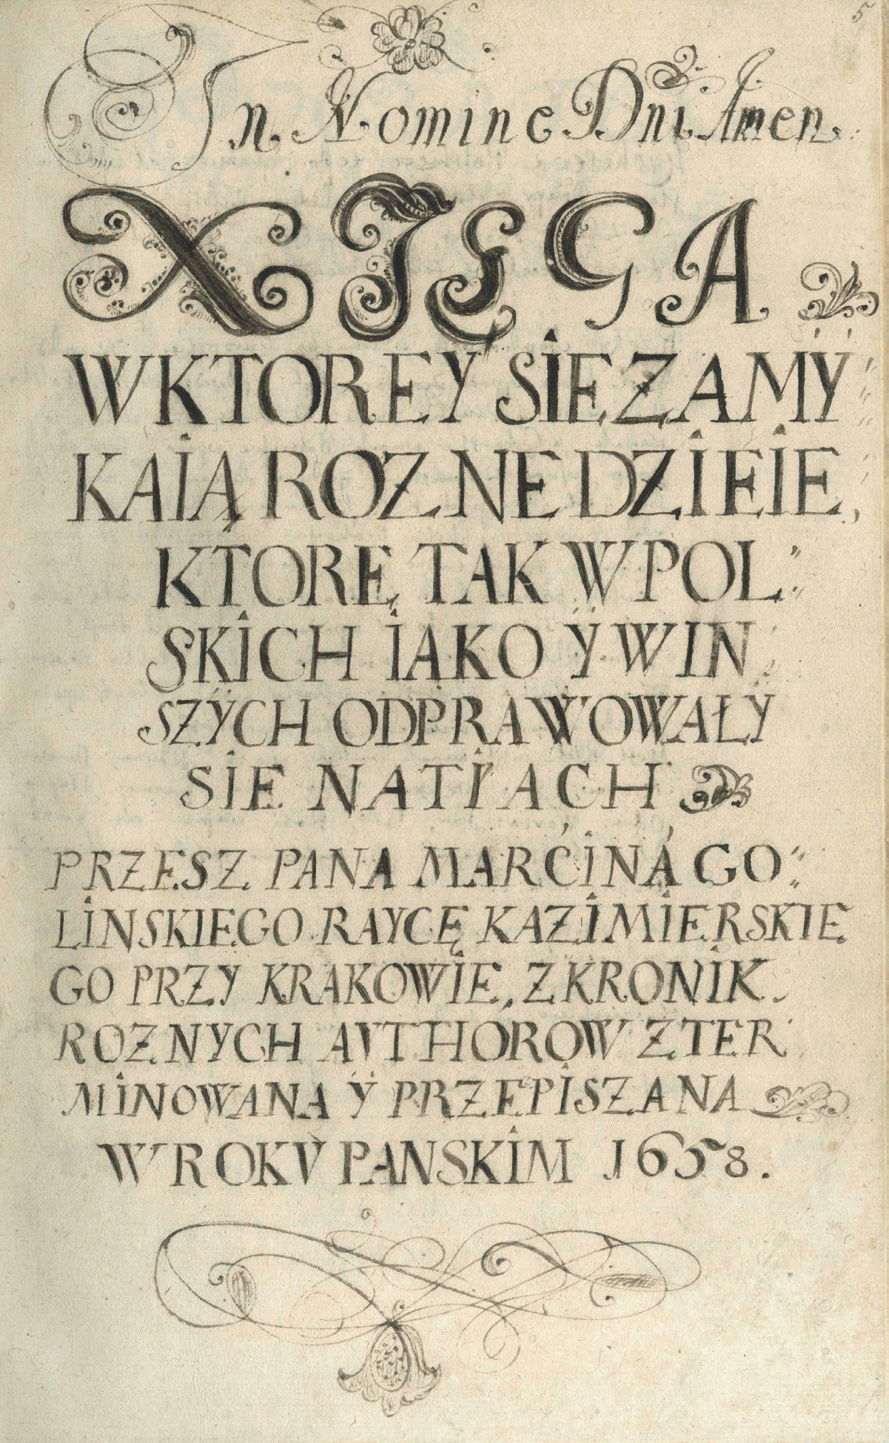 5
In. Nomine Dni. Amen.
XIĘGA
W KTOREY SIE ZAMY
KAIĄ ROZNE DZIEIE,
KTORĘ TAK W POL:
SKICH IAKO Y W IN
SZYCH ODPRAWOWAŁY
SIE NATIACH
PRZESZ PANA MARCINA GO:
LINSKIEGO RAYCĘ KAZIMIERSKIE
GO PRZY KRAKOWIE, Z KRONIK
ROZNYCH AVTHOROW ZTER
MINOWANA Y PRZEPISZANA
W ROKV PANSKIM 1658.